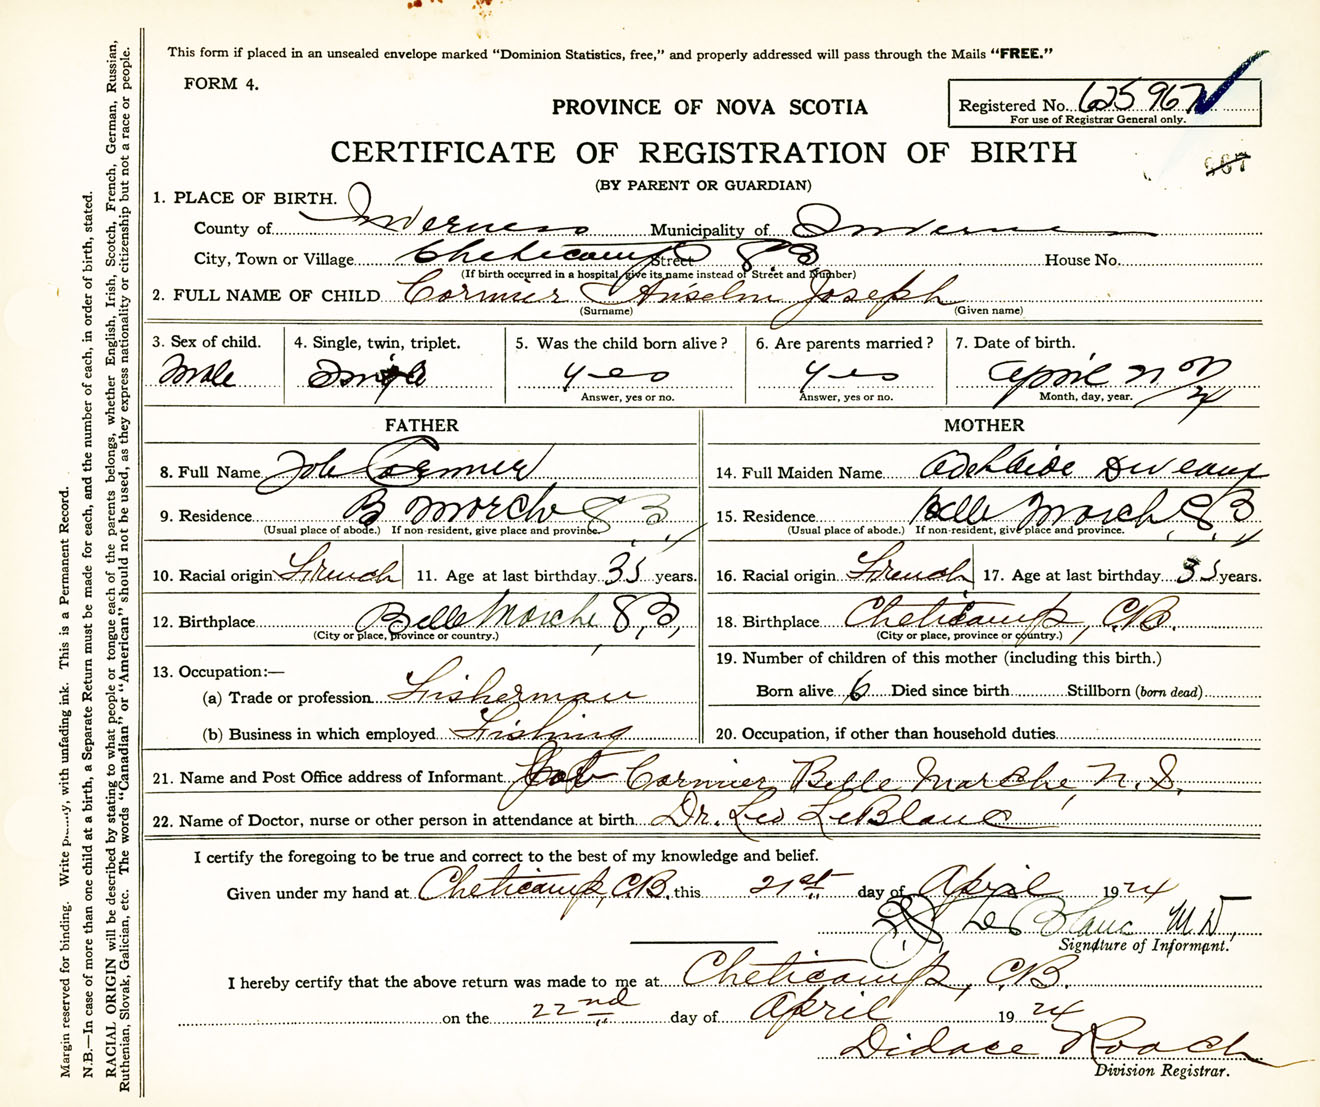 This form if placed in an unsealed envelope marked "Dominion Statistics, free," and properly addressed will pass through the Mails "FREE."
FORM 4.
PROVINCE OF NOVA SCOTIA
Registered No. 625967
For use of Registrar General only.
CERTIFICATE OF REGISTRATION OF BIRTH
567
(BY PARENT OR GUARDIAN)
1. PLACE OF BIRTH.
County of Inverness Municipality of Inverness
City, Town or Village Cheticamp Street C B House No.
(If birth occurred in a hospital, give its name instead of Street and Number)
2. FULL NAME OF CHILD Cormier Anselm Joseph
(Surname) (Given name)
3. Sex of child. 4. Single, twin, triplet. 5. Was the child born alive? 6. Are parents married? 7. Date of birth.
Male Single yes yes April
Answer, yes or no. Answer, yes or no. Month, day, year.
FATHER MOTHER
8. Full Name Job Cormier 14. Full Maiden Name Adelaide Deveaux
9. Residence B Marche C B 15. Residence Belle March C B
(Usual place of abode.) If non-resident, give place and province. (Usual place of abode.) If non-resident, give place and province.
10. Racial origin French 11. Age at last birthday 35 years. 16. Racial origin French 17. Age at last birthday 35 years.
12. Birthplace Belle Marche C.B. 18. Birthplace Cheticamp, C.B.
(City or place, province or country.) (City or place, province or country.)
13. Occupation:— 19. Number of children of this mother (including this birth.)
(a) Trade or profession Fisherman Born alive 6 Died since birth Stillborn (born dead)
(b) Business in which employed Fishing 20. Occupation, if other than household duties
21. Name and Post Office address of Informant Job Cormier Belle Marche, N.S.
22. Name of Doctor, nurse or other person in attendance at birth Dr. Leo LeBlanc
I certify the foregoing to be true and correct to the best of my knowledge and belief.
Given under my hand at Cheticamp, C.B. this 21st day of April 1924
LeBlanc M.D.
Signature of Informant.
I hereby certify that the above return was made to me at Cheticamp, C.B.
on the 22nd day of April 1924
Didace Roach
Division Registrar.
Margin reserved for binding. Write with unfading ink. This is a Permanent Record.
N.B.—In case of more than one child at a birth, a Separate Return must be made for each, and the number of each, in order of birth, stated.
RACIAL ORIGIN will be described by stating to what people or tongue each of the parents belongs, whether English, Irish, Scotch, French, German, Russian,
Ruthenian, Slovak, Galician, etc. The words "Canadian" or "American" should not be used, as they express nationality or citizenship but not a race or people.